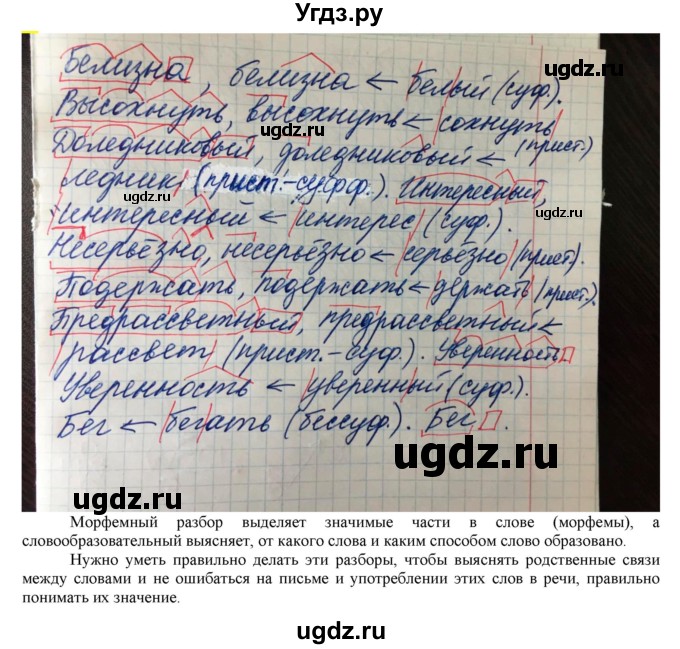 Угдз.ру
Белизна, белизна ← белый (суф.).
Высохнуть, высохнуть ← сохнуть
Доледниковый, доледниковый ← (прист.)
ледник (прист.-суфф.). Интересный,
интересный ← интерес (суф.).
Несерьёзно, несерьёзно ← серьёзно (прист).
Подержать, подержать ← держать (прист.).
Предрассветный, предрассветный ←
рассвет (прист.-суф.). Уверенность
Уверенность ← уверенный (суф.).
Бег ← бегать (бессуф.). Бег.
Морфемный разбор выделяет значимые части в слове (морфемы), а
словообразовательный выясняет, от какого слова и каким способом слово образовано.
Нужно уметь правильно делать эти разборы, чтобы выяснять родственные связи
между словами и не ошибаться на письме и употреблении этих слов в речи, правильно
понимать их значение.
ugdz.ru
ugdz.ru
ugdz.ru
ugdz.ru
ugdz.ru
ugdz.ru
ugdz.ru